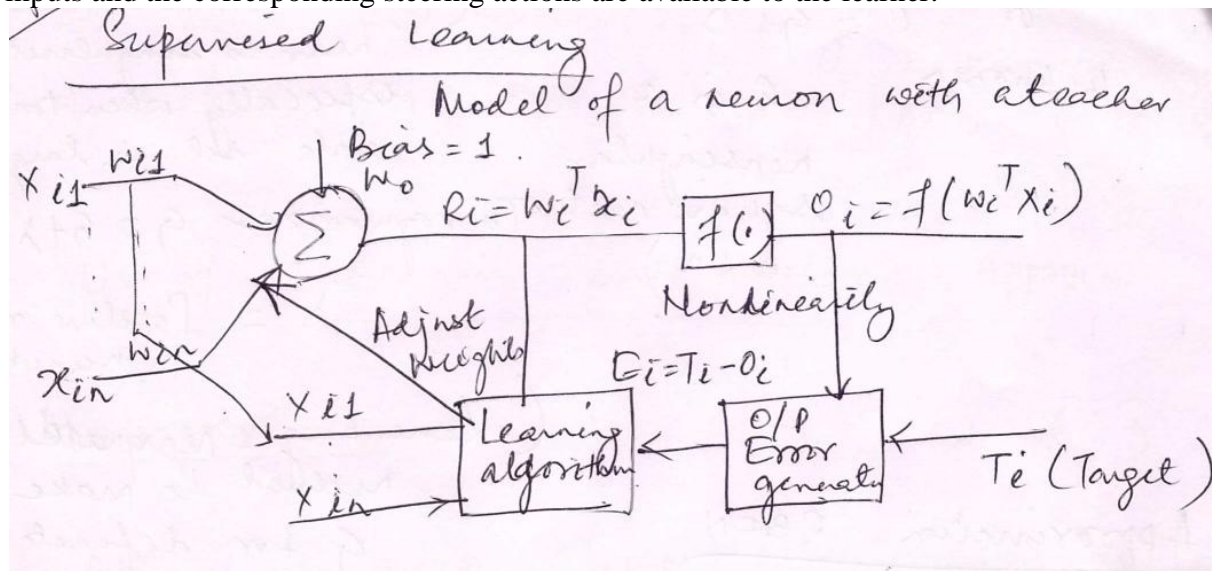 inputs and the corresponding steering actions are available to the learner.
Supervised Learning
Model of a neuron with a teacher
Bias = 1
w0
xi1
wi1
Σ
Ri = wi^T xi
f(.)
Oi = f(wi^T xi)
Nonlinearity
Adjust
Weights
win
xin
Ei = Ti - Oi
xi1
Learning
algorithm
O/P
Error
generator
Ti (Target)
xin